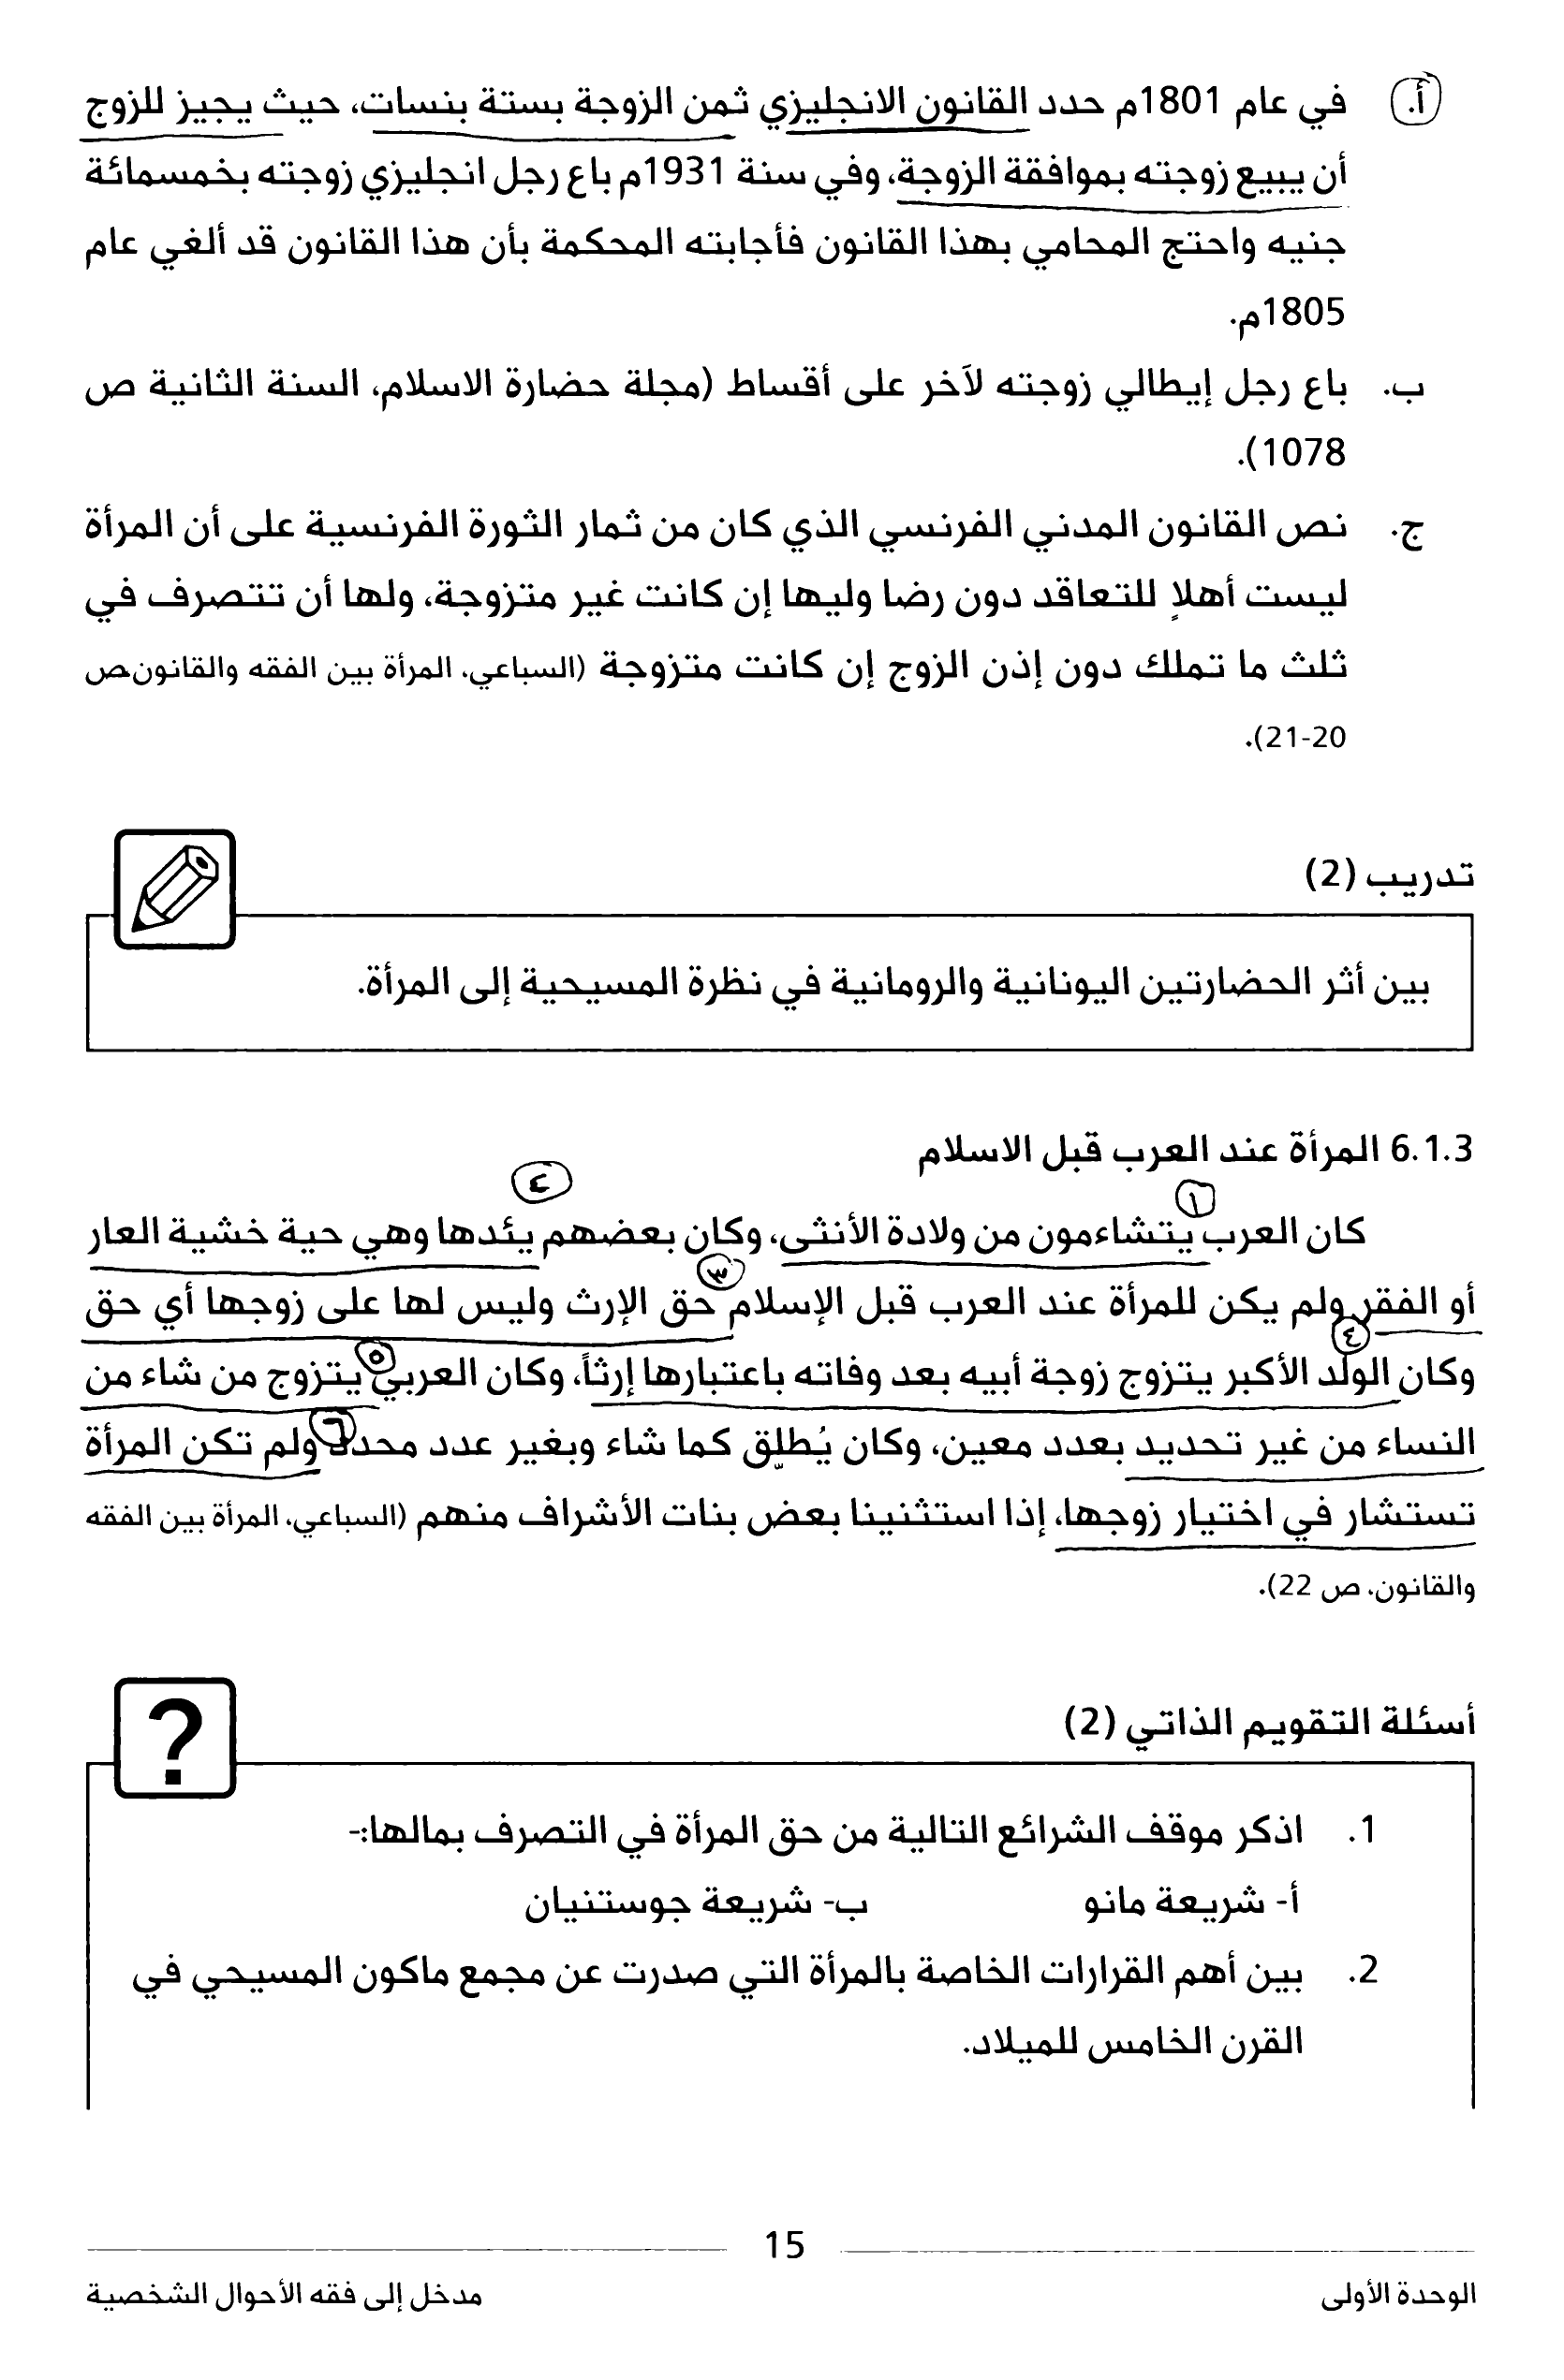 أ. في عام 1801م حدد القانون الانجليزي ثمن الزوجة بستة بنسات، حيث يجيز للزوج
أن يبيع زوجته بموافقة الزوجة، وفي سنة 1931م باع رجل انجليزي زوجته بخمسمائة
جنيه واحتج المحامي بهذا القانون فأجابته المحكمة بأن هذا القانون قد ألغي عام
1805م.
ب. باع رجل إيطالي زوجته لآخر على أقساط (مجلة حضارة الاسلام، السنة الثانية ص
1078).
ج. نص القانون المدني الفرنسي الذي كان من ثمار الثورة الفرنسية على أن المرأة
ليست أهلاٍ للتعاقد دون رضا وليها إن كانت غير متزوجة، ولها أن تتصرف في
ثلث ما تملك دون إذن الزوج إن كانت متزوجة (السباعي، المرأة بين الفقه والقانون،ص
20-21).
تدريب (2)
بين أثر الحضارتين اليونانية والرومانية في نظرة المسيحية إلى المرأة.
6.1.3 المرأة عند العرب قبل الاسلام
١ ٤
كان العرب يتشاءمون من ولادة الأنثى، وكان بعضهم يئدها وهي حية خشية العار
٣
أو الفقر ولم يكن للمرأة عند العرب قبل الإسلام حق الإرث وليس لها على زوجها أي حق
٤ ٥
وكان الولد الأكبر يتزوج زوجة أبيه بعد وفاته باعتبارها إرثاً، وكان العربي يتزوج من شاء من
٦
النساء من غير تحديد بعدد معين، وكان يُطلِّق كما شاء وبغير عدد محدد ولم تكن المرأة
تستشار في اختيار زوجها، إذا استثنينا بعض بنات الأشراف منهم (السباعي، المرأة بين الفقه
والقانون، ص 22).
?
أسئلة التقويم الذاتي (2)
1. اذكر موقف الشرائع التالية من حق المرأة في التصرف بمالها:-
أ- شريعة مانو ب- شريعة جوستنيان
2. بين أهم القرارات الخاصة بالمرأة التي صدرت عن مجمع ماكون المسيحي في
القرن الخامس للميلاد.
15
الوحدة الأولى مدخل إلى فقه الأحوال الشخصية